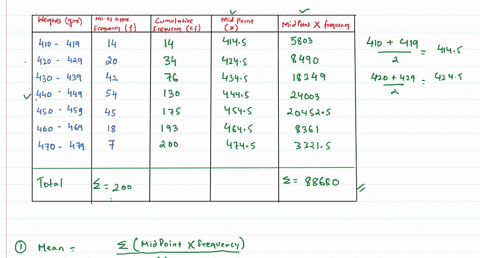 Weights (gms) No. of Apple Frequency (f) Cumulative Frequency (cf) Mid Point (x) Midpoint X frequency
410 - 419 14 14 414.5 5803
420 - 429 20 34 424.5 8490
430 - 439 42 76 434.5 18249
440 - 449 54 130 444.5 24003
450 - 459 45 175 454.5 20452.5
460 - 469 18 193 464.5 8361
470 - 479 7 200 474.5 3321.5
Total Σ = 200 Σ = 88680
410 + 419 / 2 = 414.5
420 + 429 / 2 = 424.5
① Mean = Σ (Midpoint X frequency)